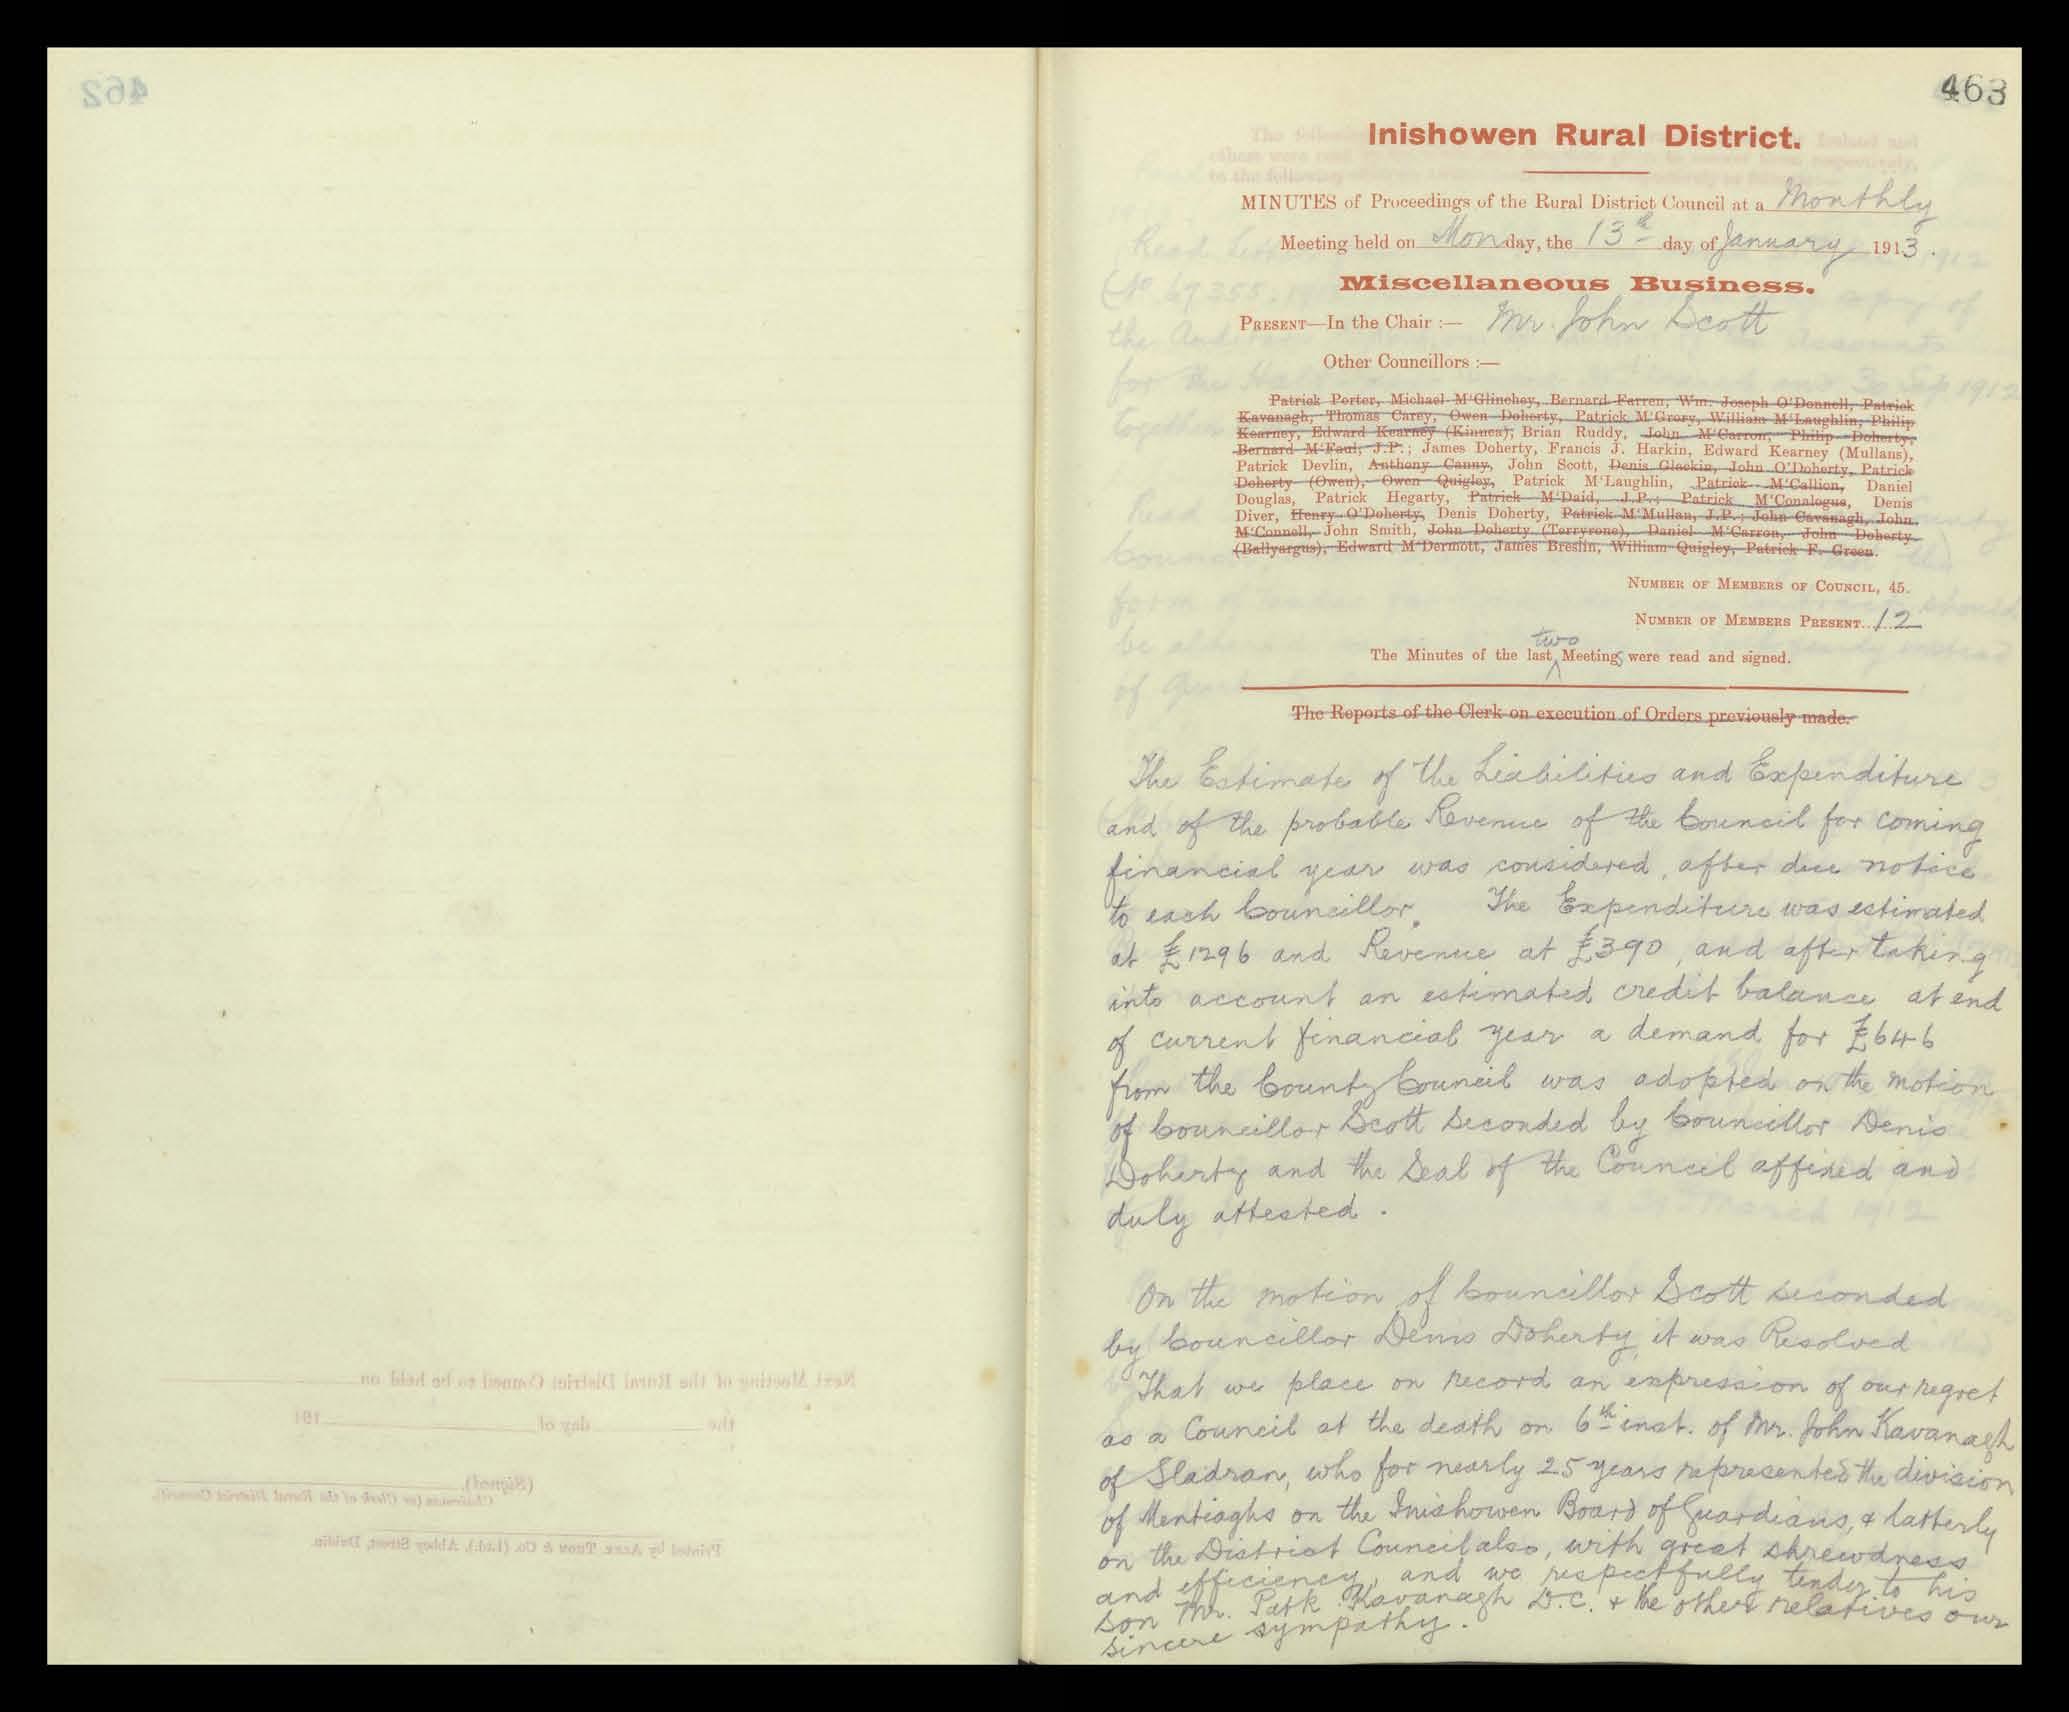 462
463
Inishowen Rural District.
MINUTES of Proceedings of the Rural District Council at a Monthly
Meeting held on Monday, the 13th day of January 1913.
Miscellaneous Business.
PRESENT—In the Chair :— Mr. John Scott
Other Councillors :—
Patrick Porter, Michael M'Glinchey, Bernard Farren, Wm. Joseph O'Donnell, Patrick
Kavanagh, Thomas Carey, Owen Doherty, Patrick M'Grory, William M'Laughlin, Philip
Kearney, Edward Kearney (Kinnea), Brian Ruddy, John M'Carron, Philip Doherty,
Bernard M'Faul, J.P.; James Doherty, Francis J. Harkin, Edward Kearney (Mullans),
Patrick Devlin, Anthony Canny, John Scott, Denis Glackin, John O'Doherty, Patrick
Doherty (Owen), Owen Quigley, Patrick M'Laughlin, Patrick M'Callion, Daniel
Douglas, Patrick Hegarty, Patrick M'Daid, J.P.; Patrick M'Conalogue, Denis
Diver, Henry O'Doherty, Denis Doherty, Patrick M'Mullan, J.P.; John Cavanagh, John
M'Connell, John Smith, John Doherty (Terryrone), Daniel M'Carron, John Doherty
(Ballyargus), Edward M'Dermott, James Breslin, William Quigley, Patrick F. Green.
NUMBER OF MEMBERS OF COUNCIL, 45.
NUMBER OF MEMBERS PRESENT...12
The Minutes of the last two Meetings were read and signed.
The Reports of the Clerk on execution of Orders previously made.
The Estimate of the Liabilities and Expenditure
and of the probable Revenue of the Council for coming
financial year was considered, after due notice
to each Councillor. The Expenditure was estimated
at £1296 and Revenue at £390, and after taking
into account an estimated credit balance at end
of current financial year a demand for £646
from the County Council was adopted on the motion
of Councillor Scott seconded by Councillor Denis
Doherty and the Seal of the Council affixed and
duly attested.
On the motion of Councillor Scott seconded
by Councillor Denis Doherty, it was Resolved
That we place on record an expression of our regret
as a Council at the death on 6th inst. of Mr. John Kavanagh
of Sladran, who for nearly 25 years represented the division
of Mentiaghs on the Inishowen Board of Guardians, & latterly
on the District Council also, with great shrewdness
and efficiency, and we respectfully tender to his
son Mr. Patk Kavanagh D.C. & the other relatives our
sincere sympathy.
Next Meeting of the Rural District Council to be held on
the day of 191
(Signed)
Chairman (or Clerk of the Rural District Council).
Printed by ALEX. THOM & Co. (Ltd.), Abbey Street, Dublin.